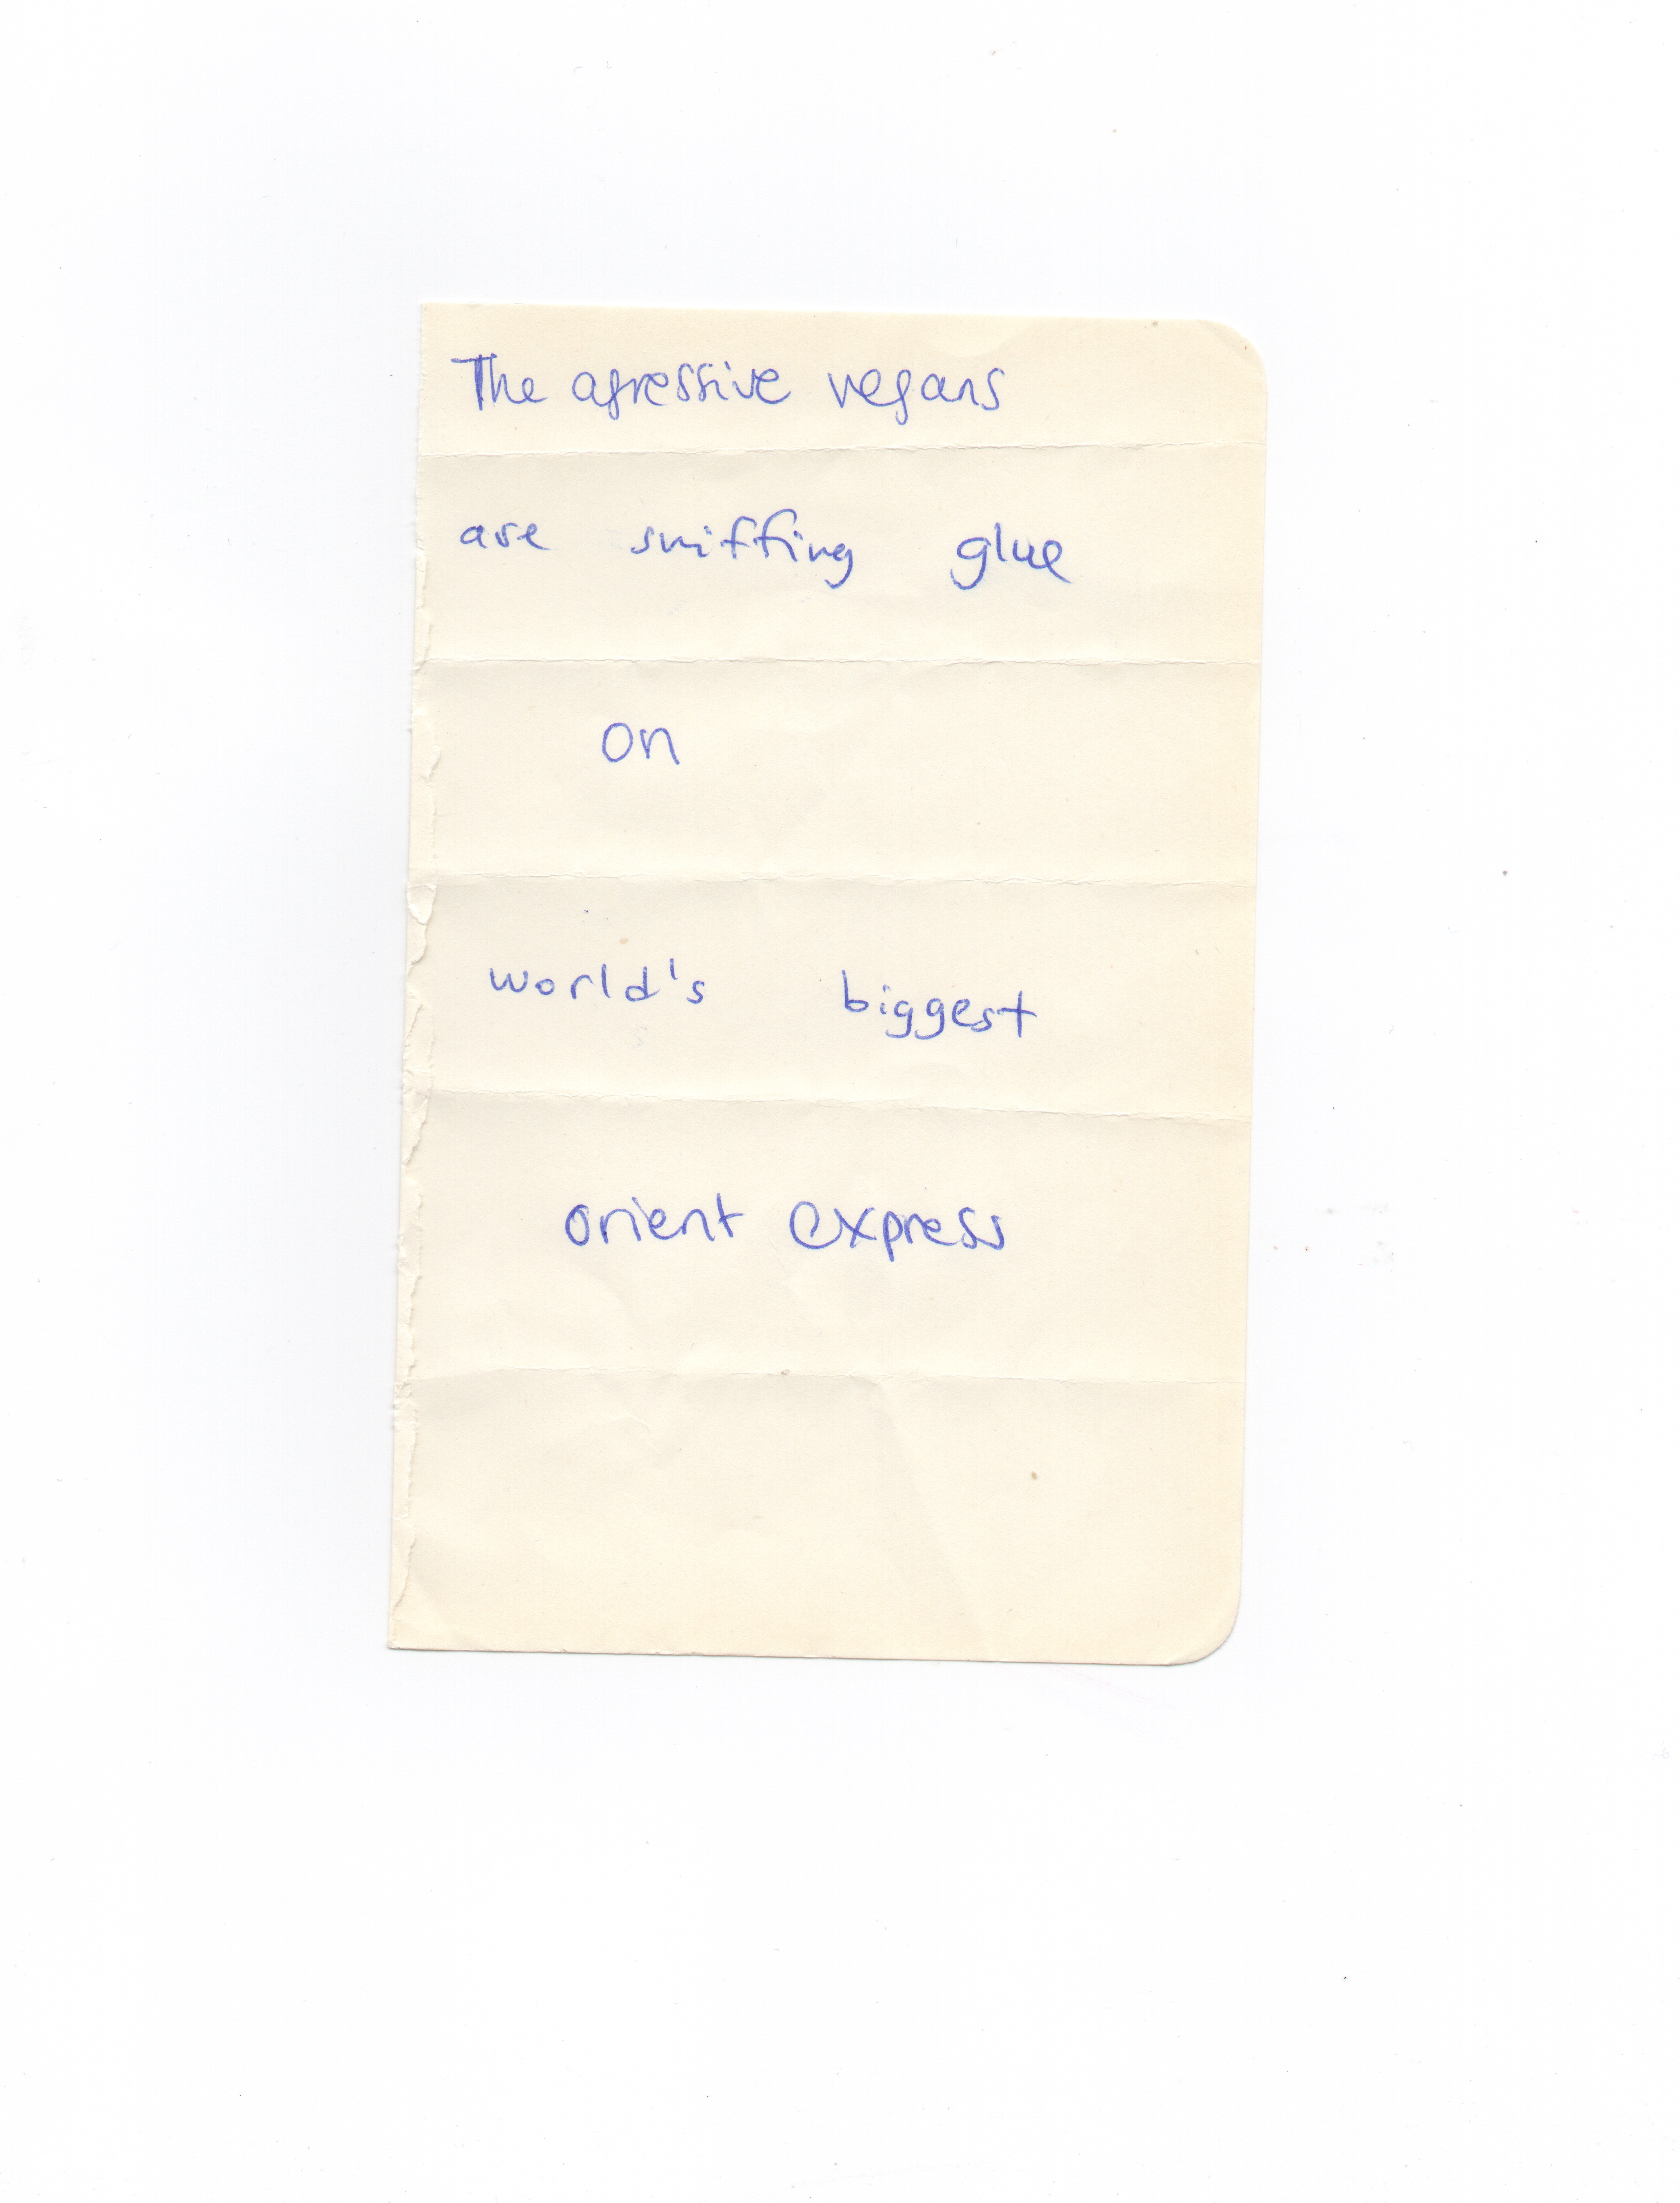 The agressive vegans
are sniffing glue
on
world's biggest
orient express